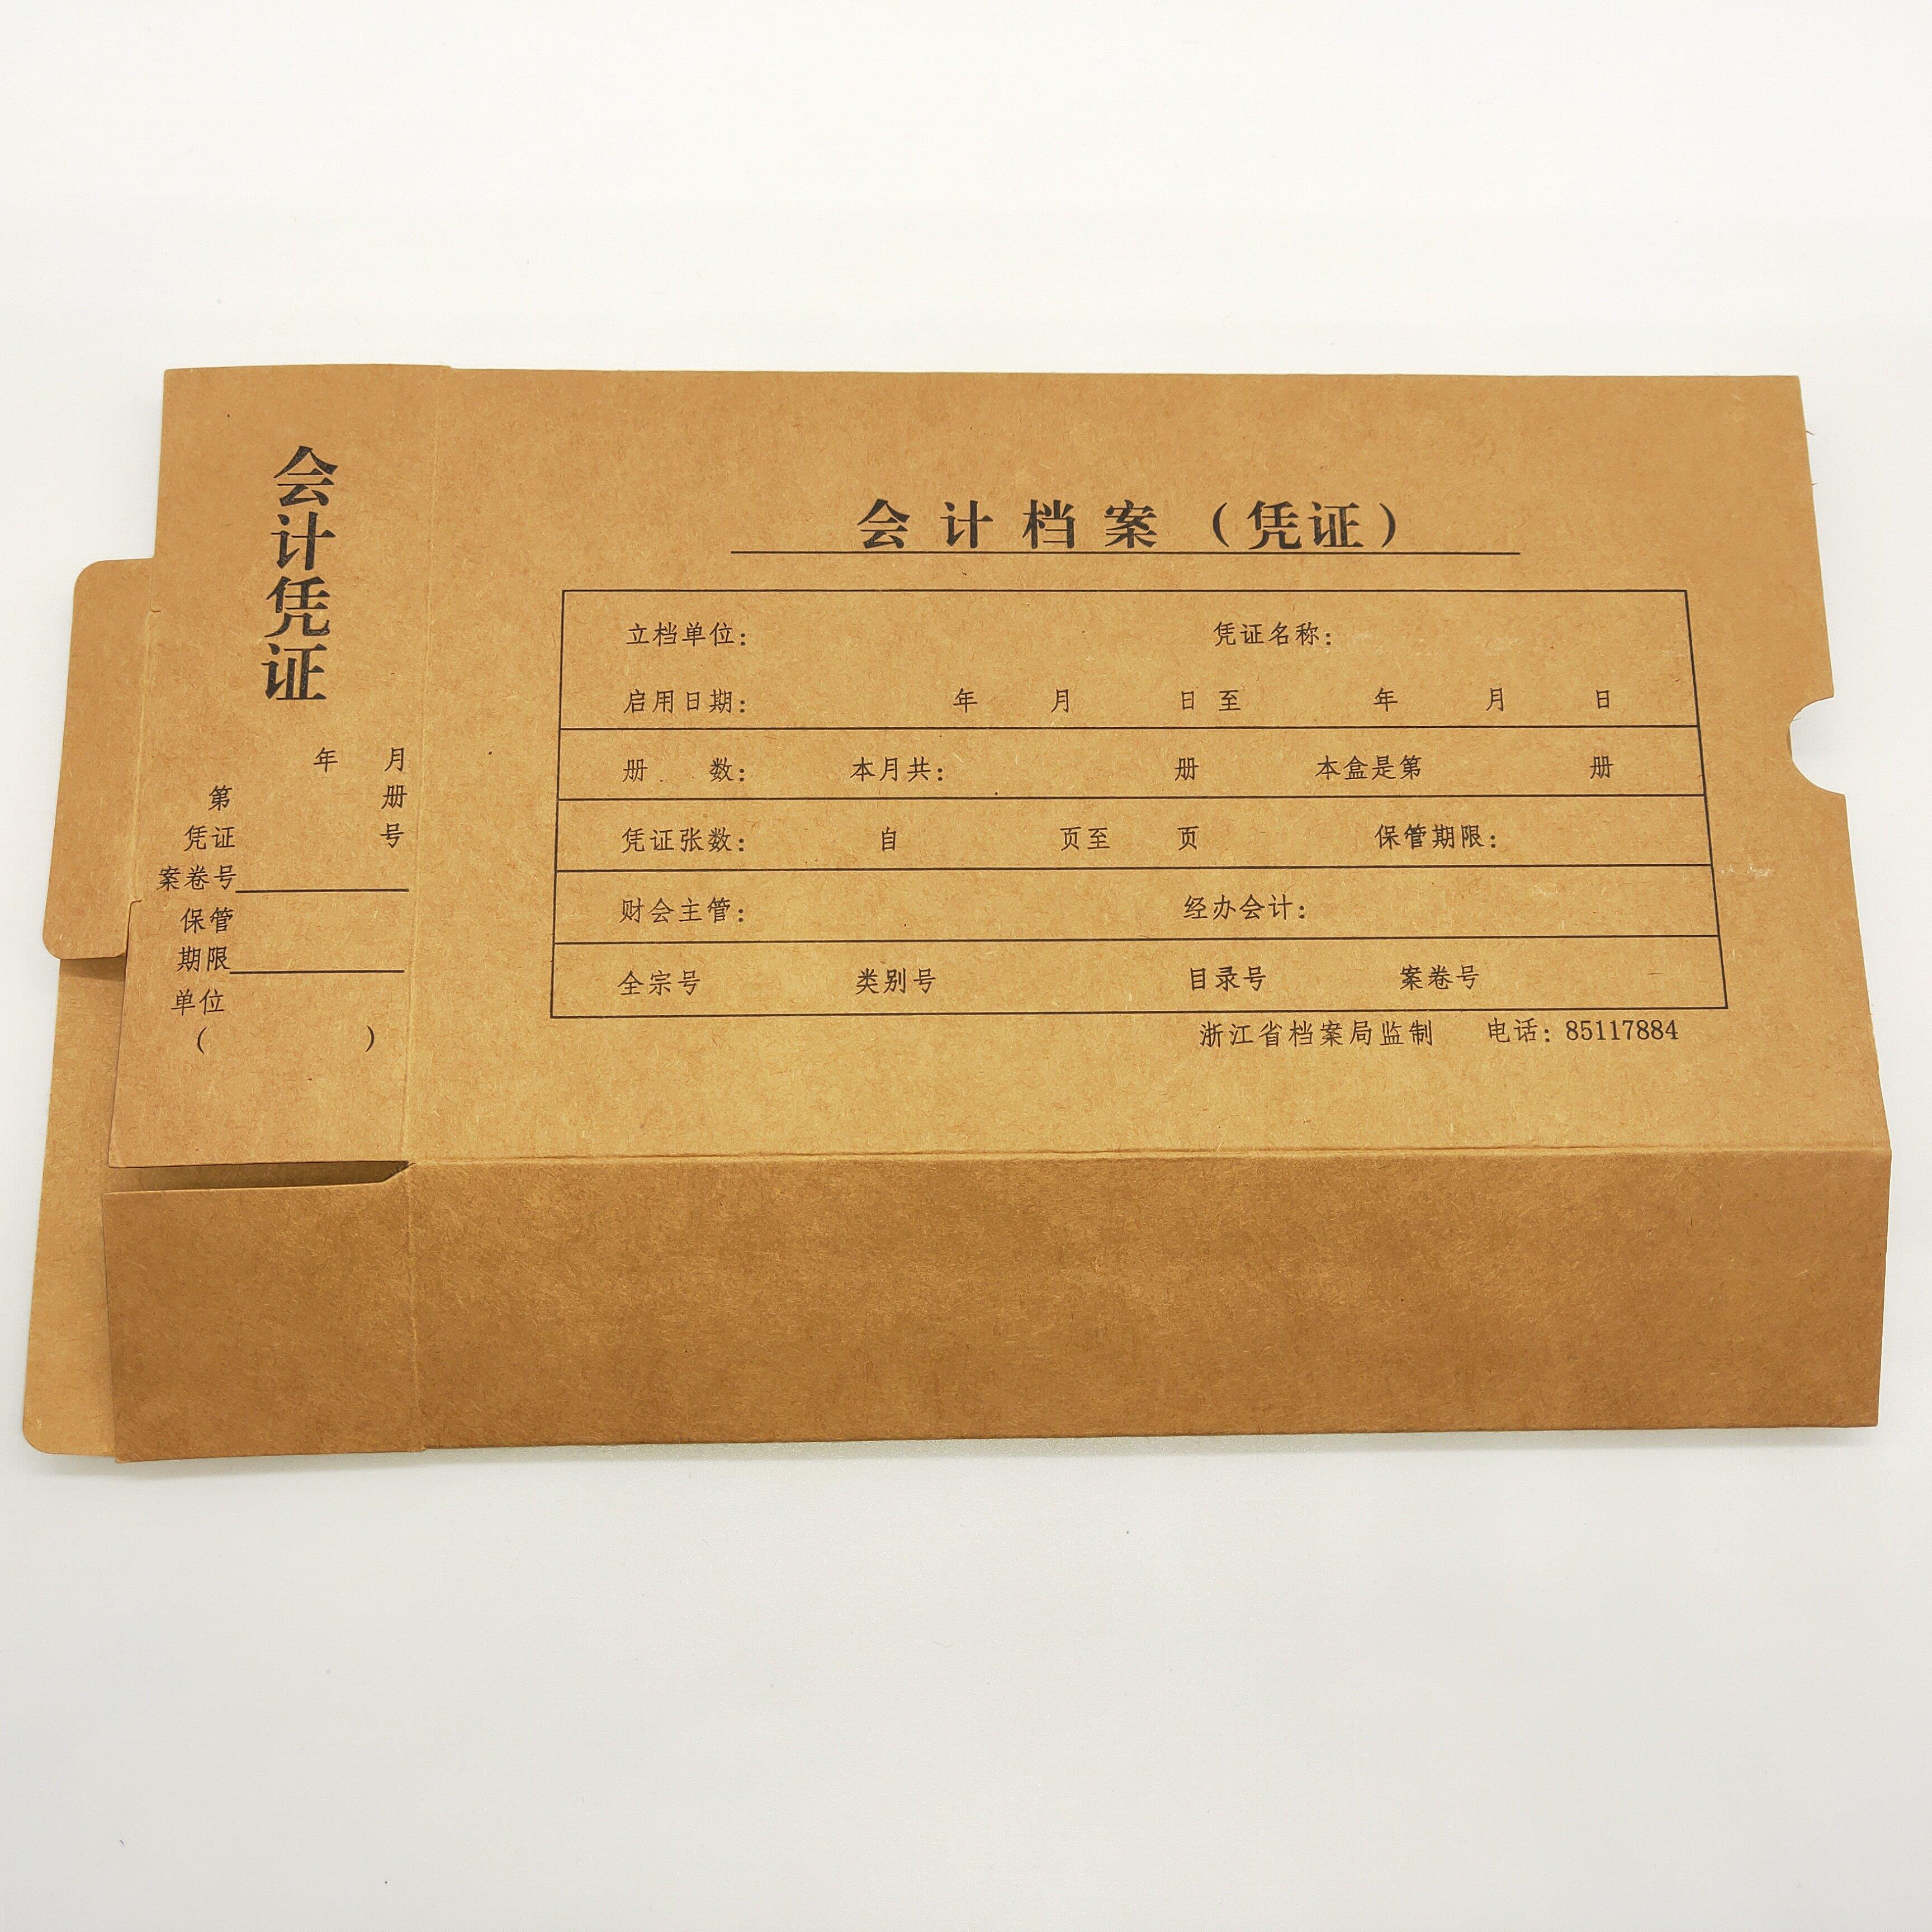 会计凭证
年 月
第 册
凭证 号
案卷号
保管
期限
单位
（ ）
会计档案（凭证）
立档单位： 凭证名称：
启用日期： 年 月 日 至 年 月 日
册 数： 本月共： 册 本盒是第 册
凭证张数： 自 页至 页 保管期限：
财会主管： 经办会计：
全宗号 类别号 目录号 案卷号
浙江省档案局监制 电话：85117884